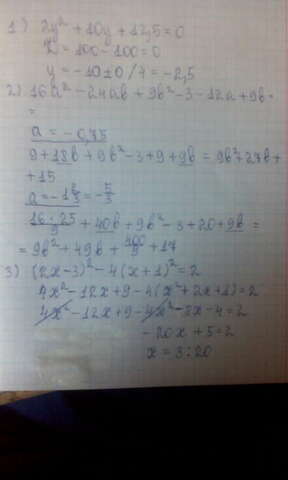 1) 2y² + 10y + 12,5 = 0
D = 100 - 100 = 0
y = -10 ± 0 / 4 = -2,5
2) 16a² - 24ab + 9b² - 3 - 12a + 9b =
=
a = -0,75
9 + 18b + 9b² - 3 + 9 + 9b = 9b² + 27b +
+ 15
a = -1 2/3 = -5/3
16·25/9 + 40b + 9b² - 3 + 20 + 9b =
= 9b² + 49b + 400/9 + 17
3) (2x - 3)² - 4(x + 1)² = 2
4x² - 12x + 9 - 4(x² + 2x + 1) = 2
4x² - 12x + 9 - 4x² - 8x - 4 = 2
- 20x + 5 = 2
x = 3 : 20